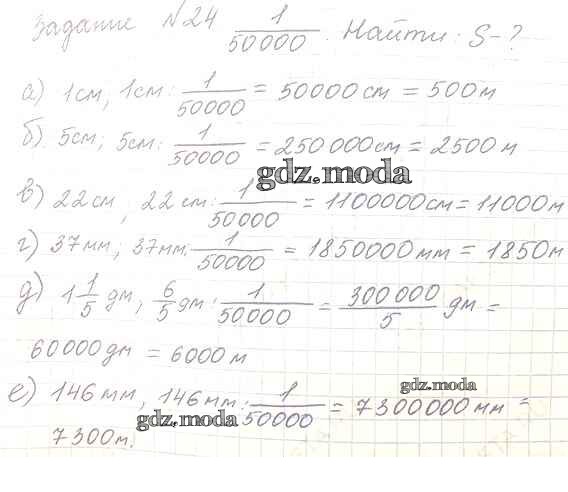 Задание №24 1/50000. Найти: S-?
а) 1см, 1см : 1/50000 = 50000 см = 500 м
б) 5см; 5см : 1/50000 = 250 000 см = 2500 м
gdz.moda
в) 22 см ; 22 см : 1/50000 = 1100000 см = 11000 м
г) 37 мм ; 37 мм : 1/50000 = 1850000 мм = 1850 м
д) 1 1/5 дм , 6/5 дм : 1/50000 = 300 000/5 дм =
60000 дм = 6000 м
gdz.moda
е) 146 мм , 146 мм : 1/50000 = 7300000 мм =
gdz.moda
7300 м.